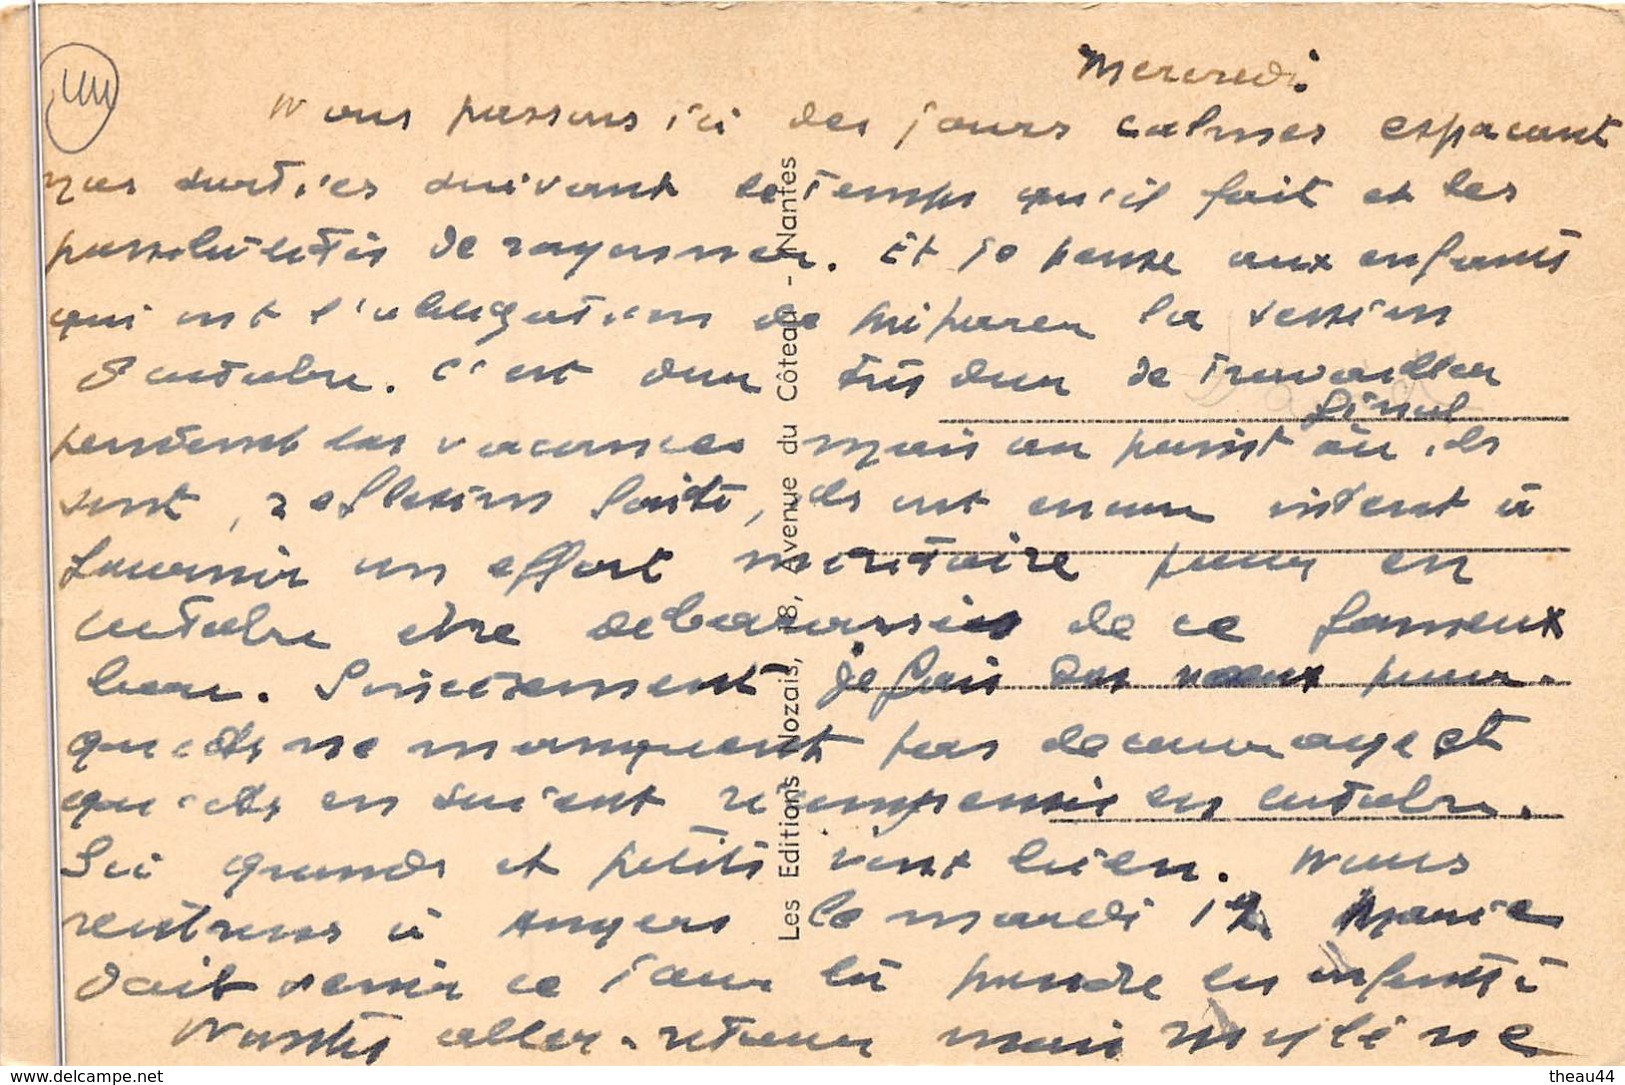 Mercredi.
Nous passons ici des jours calmes espacant
nos sorties suivant le temps qu'il fait et les
possibilités de rayonner. Et je pense aux enfants
qui ont l'obligation de préparer la session
d'octobre. C'est dur très dur de travailler
pendant les vacances mais au point final où ils
sont, reflexion faite, ils ont encore intérêt à
fournir un effort méritoire pour en
octobre être debarassés de ce fameux
bac. Sincèrement je fais des voeux pour
qu'ils ne manquent pas de courage et
qu'ils en soient récompensés en octobre.
Ici grands et petits vont bien. Nous
rentrons à Angers le mardi 12 Marie
doit venir ce jour là prendre les enfants à
Nantes aller-retour mais Mylène
Les Editions Nozais, 8, Avenue du Côteau - Nantes
www.delcampe.net
theau44